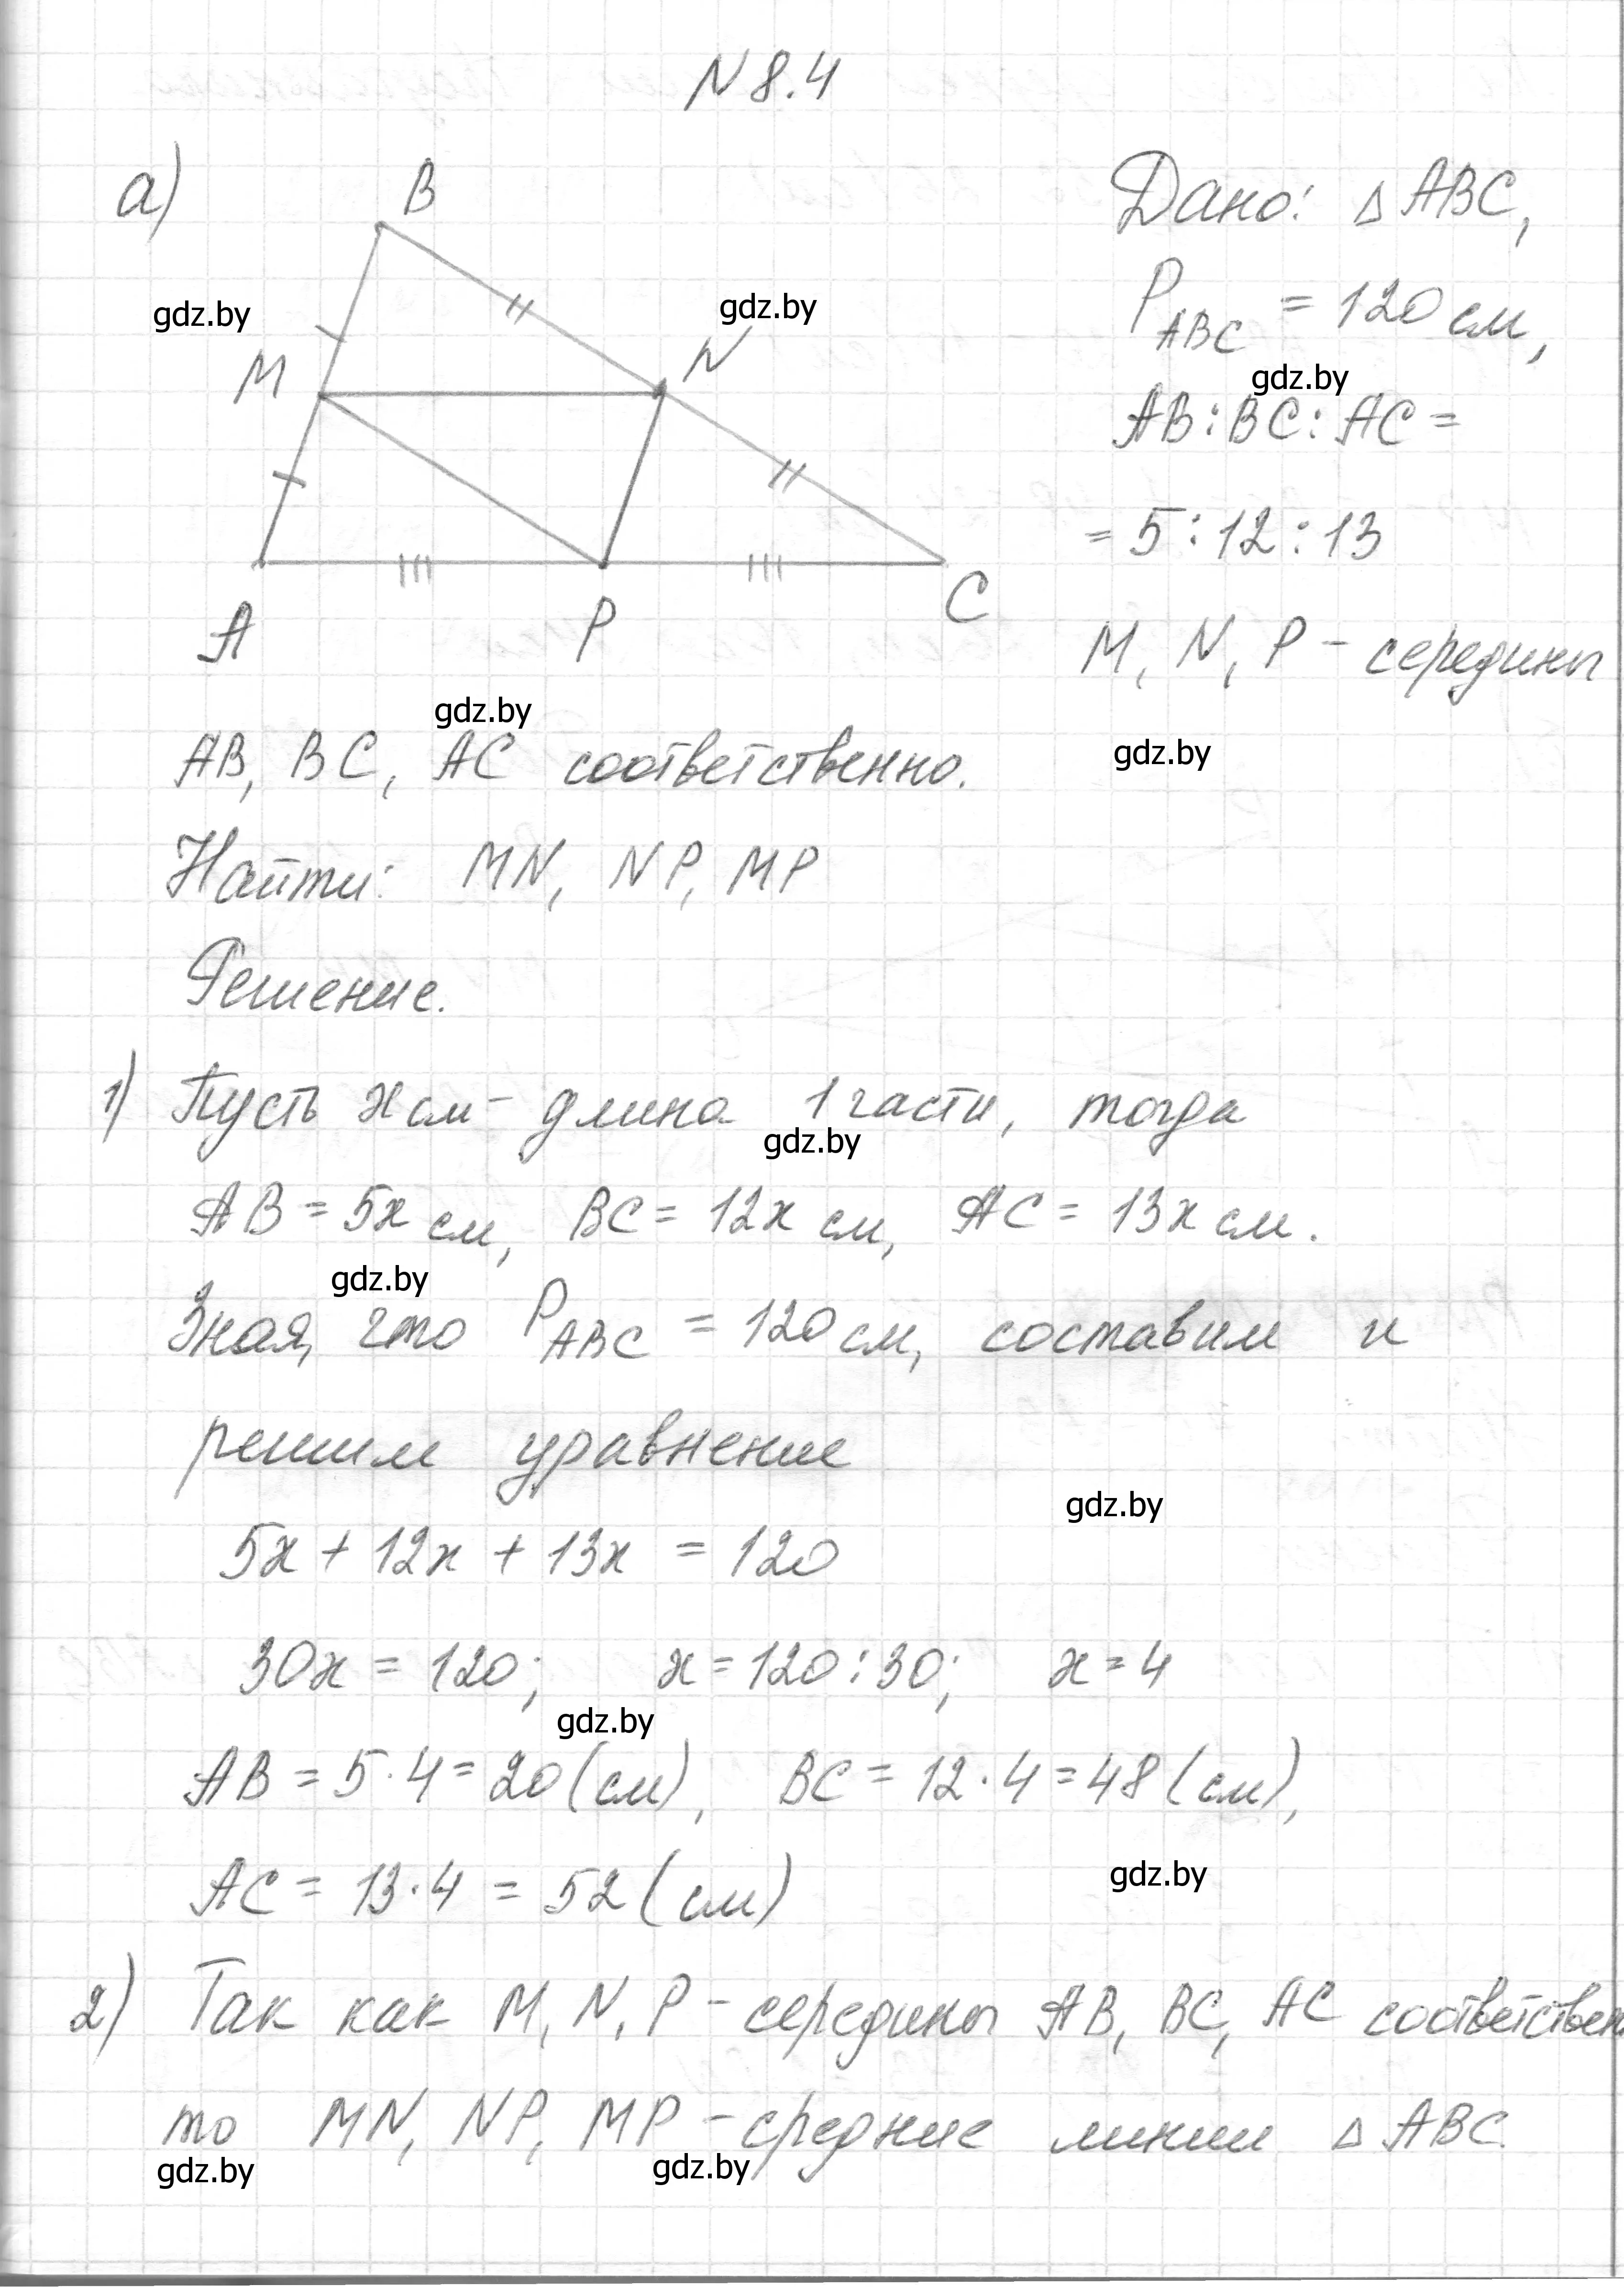 N 8.4
а)
B
M
N
A
P
C
Дано: △ ABC,
P_ABC = 120 см,
AB : BC : AC =
= 5 : 12 : 13
M, N, P - середины
AB, BC, AC соответственно.
Найти: MN, NP, MP
Решение.
1) Пусть x см - длина 1 части, тогда
AB = 5x см, BC = 12x см, AC = 13x см.
Зная, что P_ABC = 120 см, составим и
решим уравнение
5x + 12x + 13x = 120
30x = 120; x = 120 : 30; x = 4
AB = 5 · 4 = 20 (см), BC = 12 · 4 = 48 (см),
AC = 13 · 4 = 52 (см)
2) Так как M, N, P - середины AB, BC, AC соответствен
то MN, NP, MP - средние линии △ ABC.
gdz.by
gdz.by
gdz.by
gdz.by
gdz.by
gdz.by
gdz.by
gdz.by
gdz.by
gdz.by
gdz.by
gdz.by